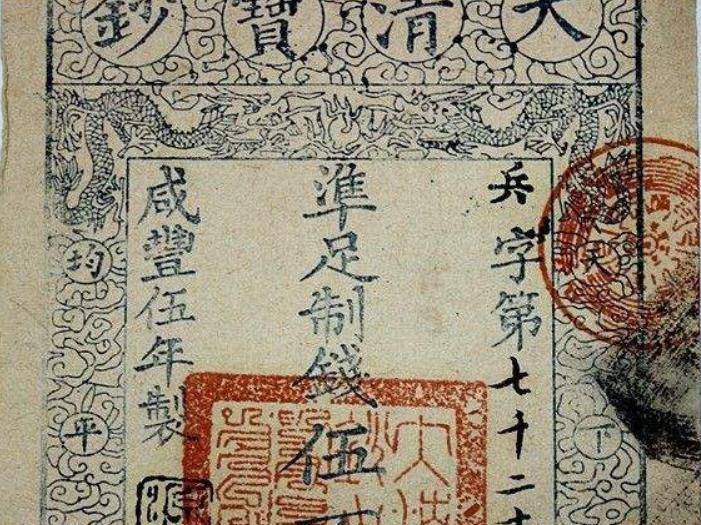 大清寶鈔
天下
兵字第七千二
準足制錢伍
咸豐伍年製
均平